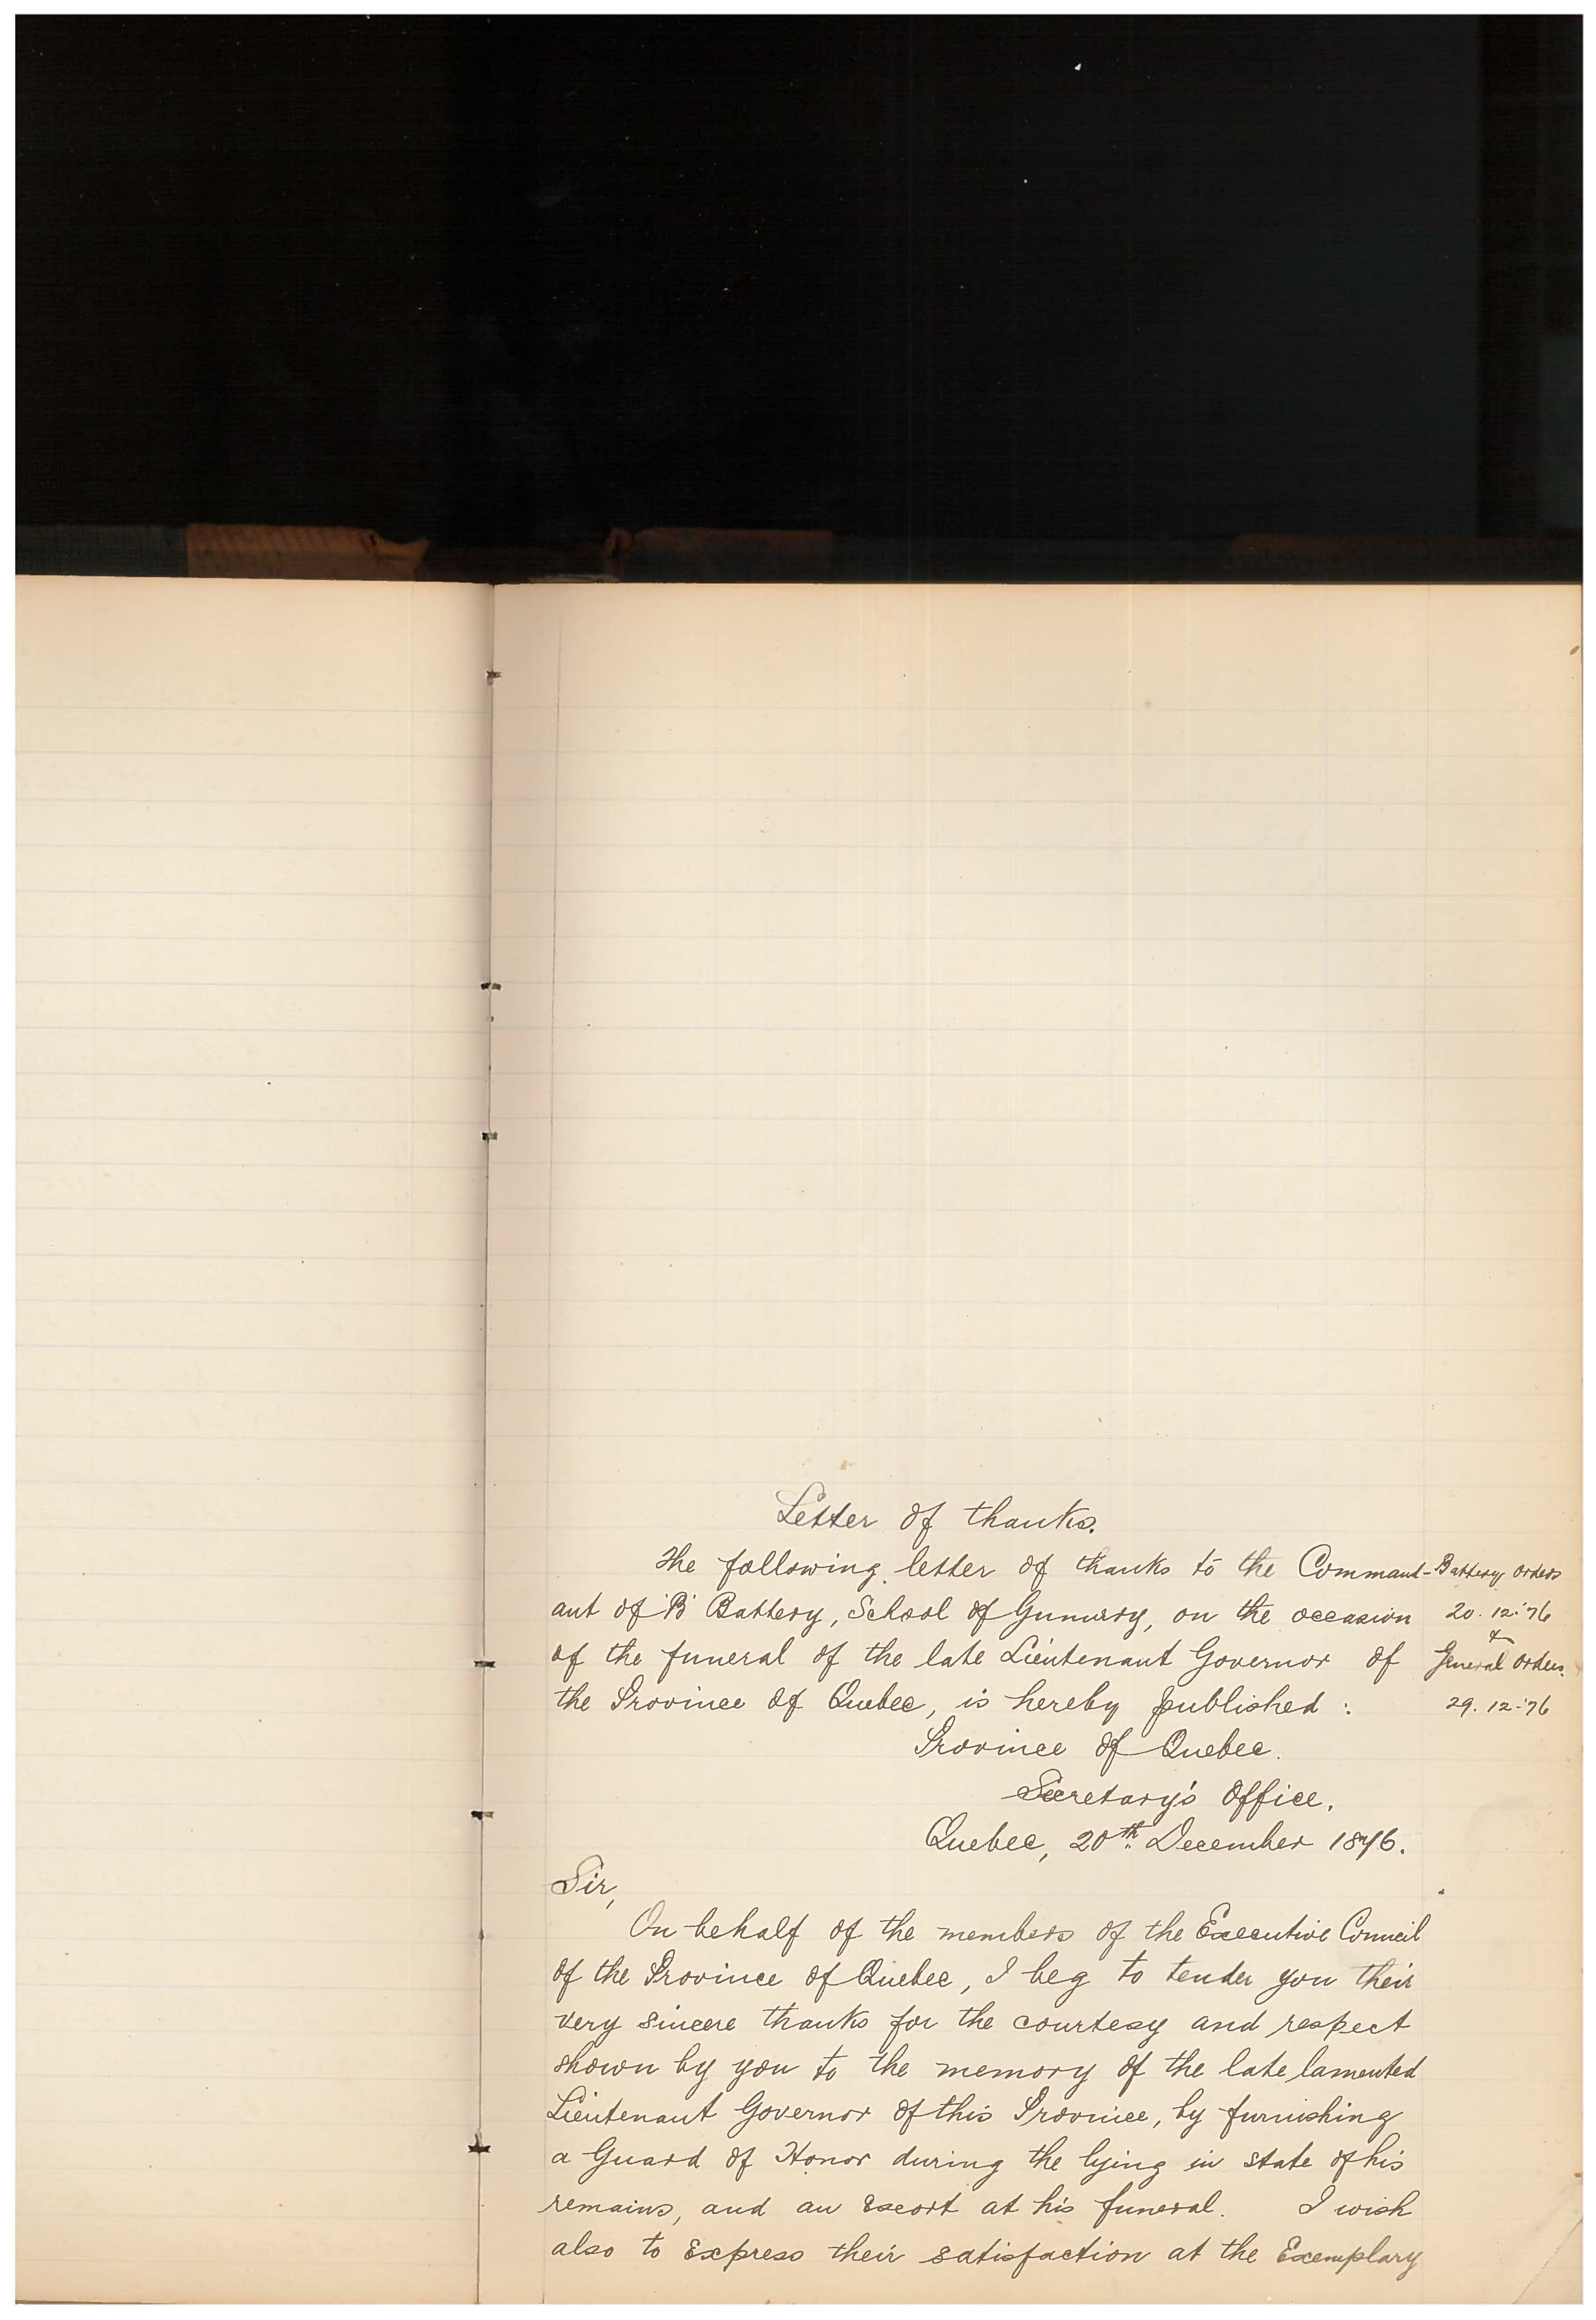 Letter of thanks.
The following letter of thanks to the Command-
ant of 'B' Battery, School of Gunnery, on the occasion
of the funeral of the late Lieutenant Governor of
the Province of Quebec, is hereby published :
Battery Orders
20.12.'76
&
General Orders.
29.12.'76
Province of Quebec.
Secretary's Office.
Quebec, 20th December 1876.
Sir,
On behalf of the members of the Executive Council
of the Province of Quebec, I beg to tender you their
very sincere thanks for the courtesy and respect
shown by you to the memory of the late lamented
Lieutenant Governor of this Province, by furnishing
a Guard of Honor during the lying in state of his
remains, and an Escort at his funeral. I wish
also to Express their satisfaction at the Exemplary